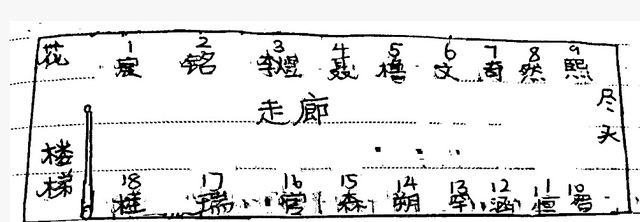 花 1 2 3 4 5 6 7 8 9
宸 铭 李煜 聂 橹 文 奇 然 熙
走廊
尽头
楼梯
18 17 16 15 14 13 12 11 10
桂 瑞 森 朔 涵 恒